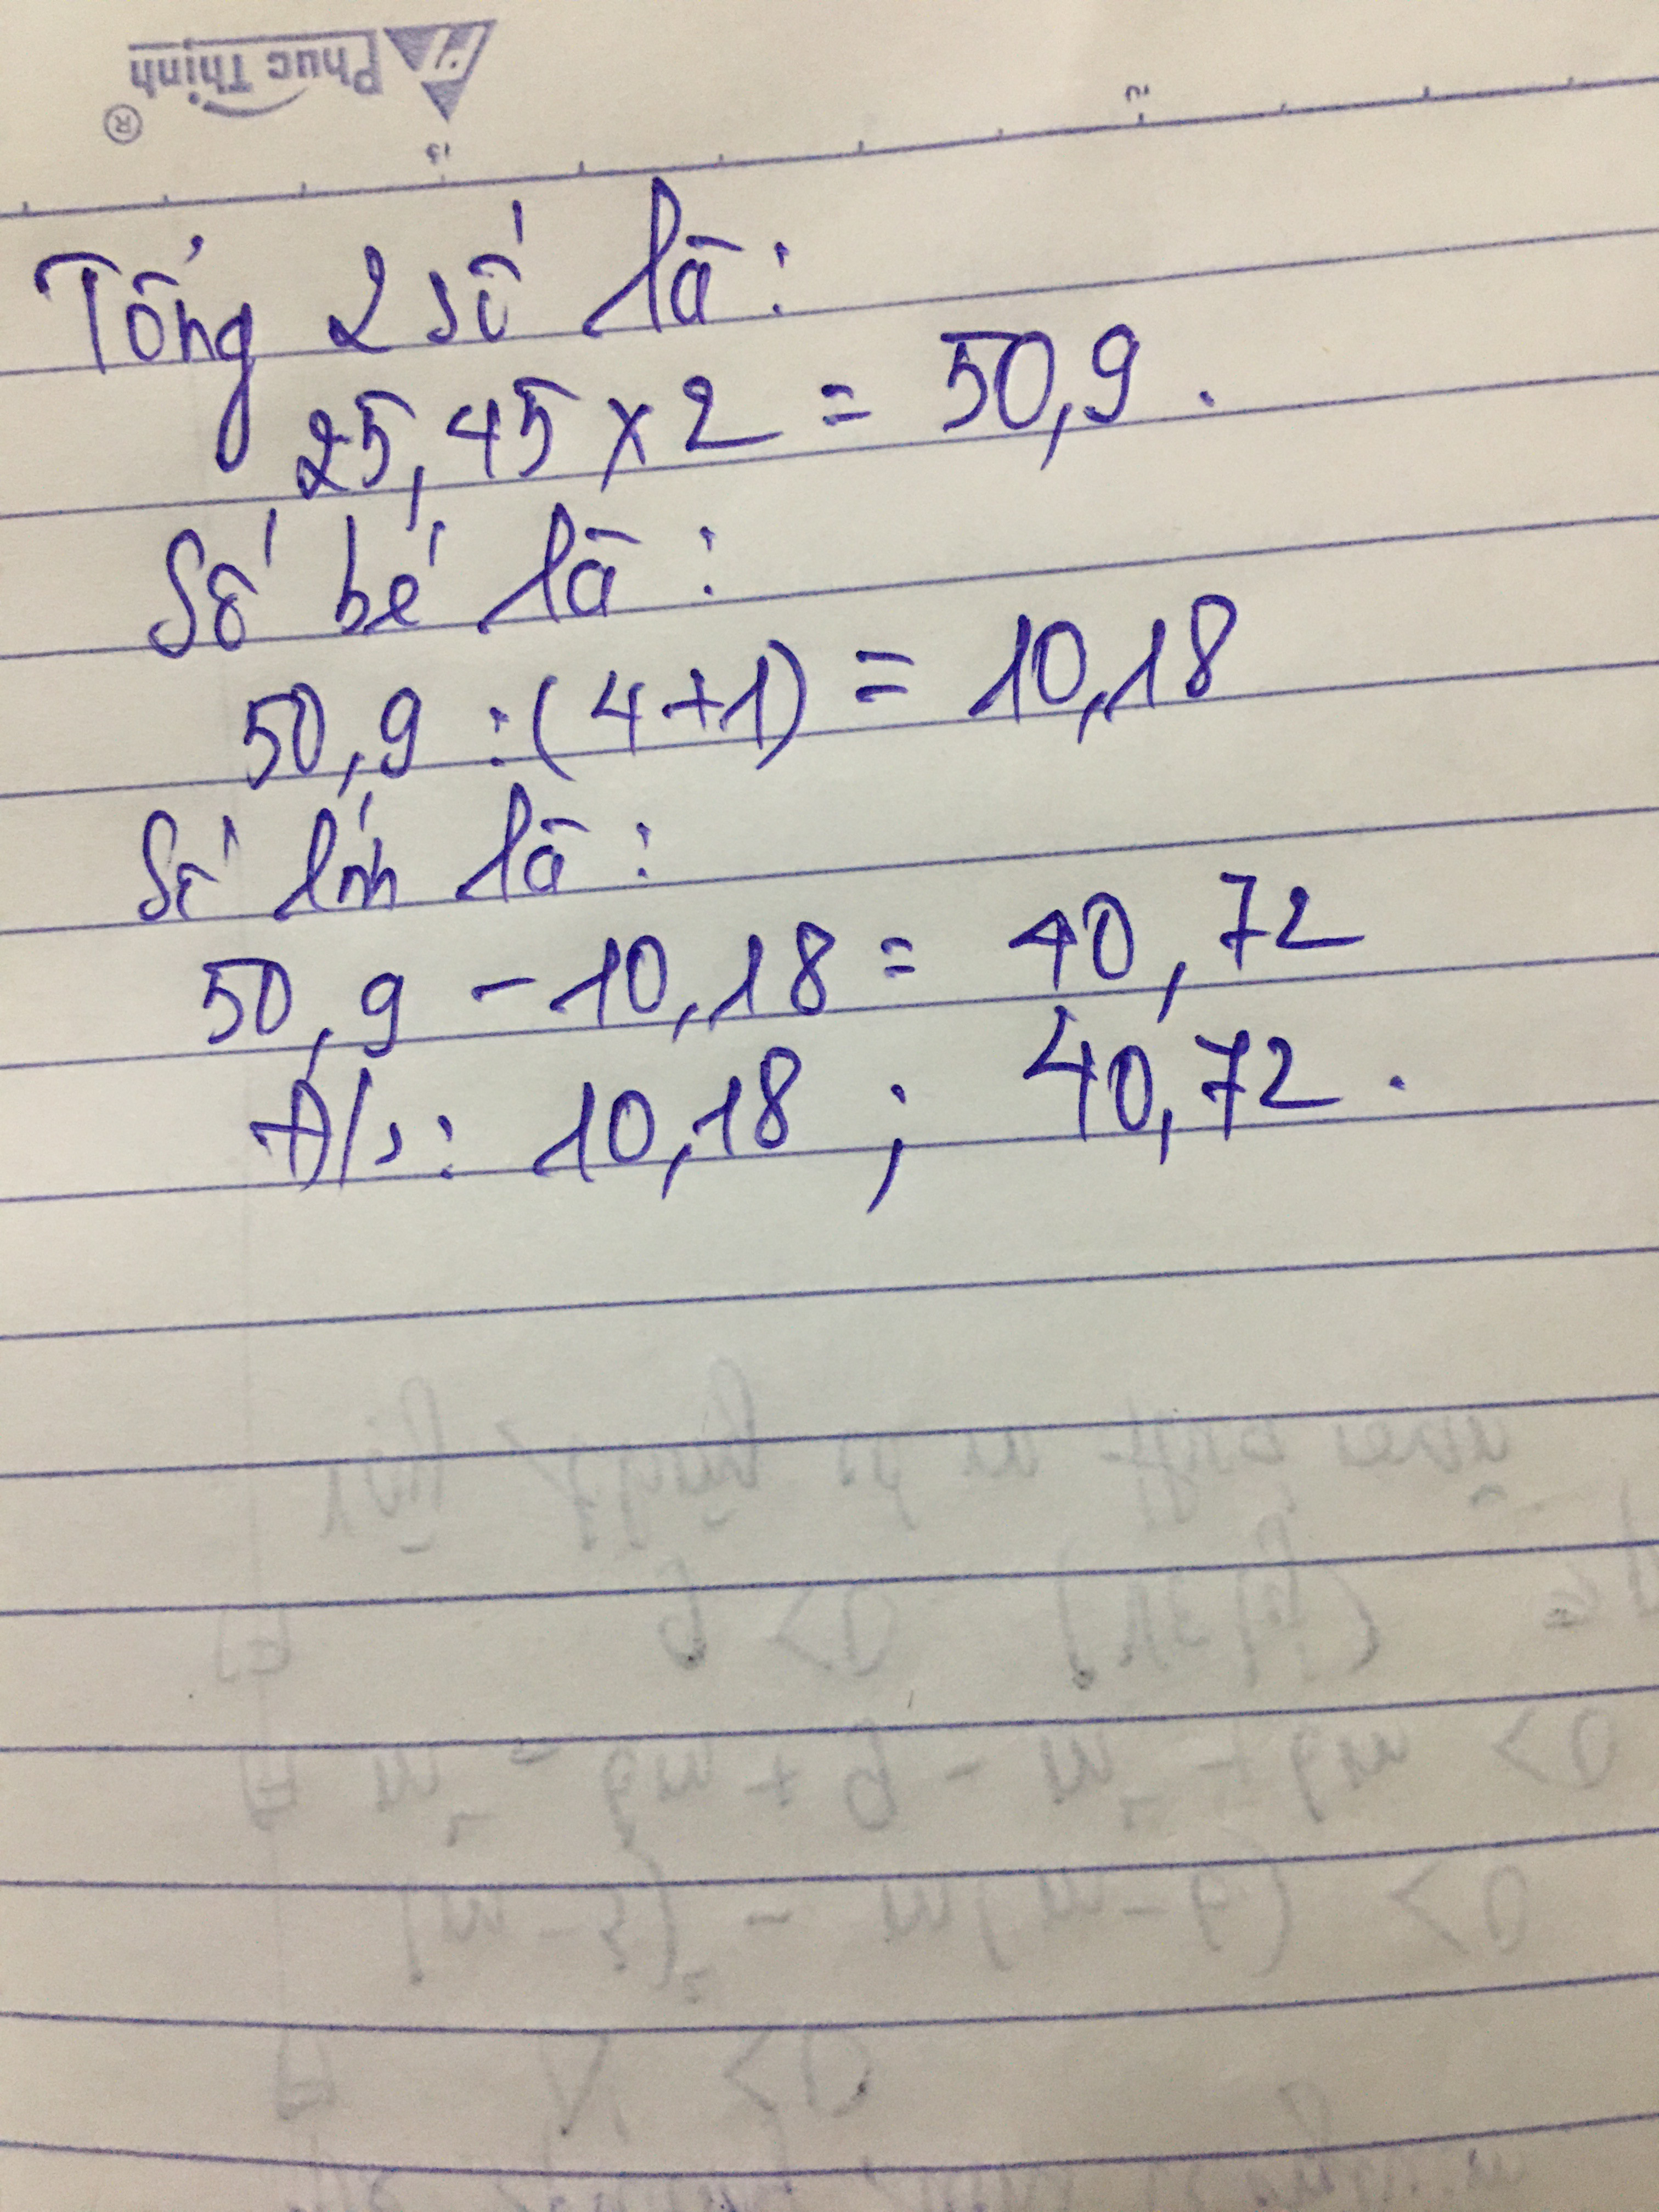 Phúc Thịnh ®
13 12
Tổng 2 số là:
25,45 x 2 = 50,9.
Số bé là:
50,9 : (4+1) = 10,18
Số lớn là:
50,9 - 10,18 = 40,72
Đ/s: 10,18 ; 40,72.